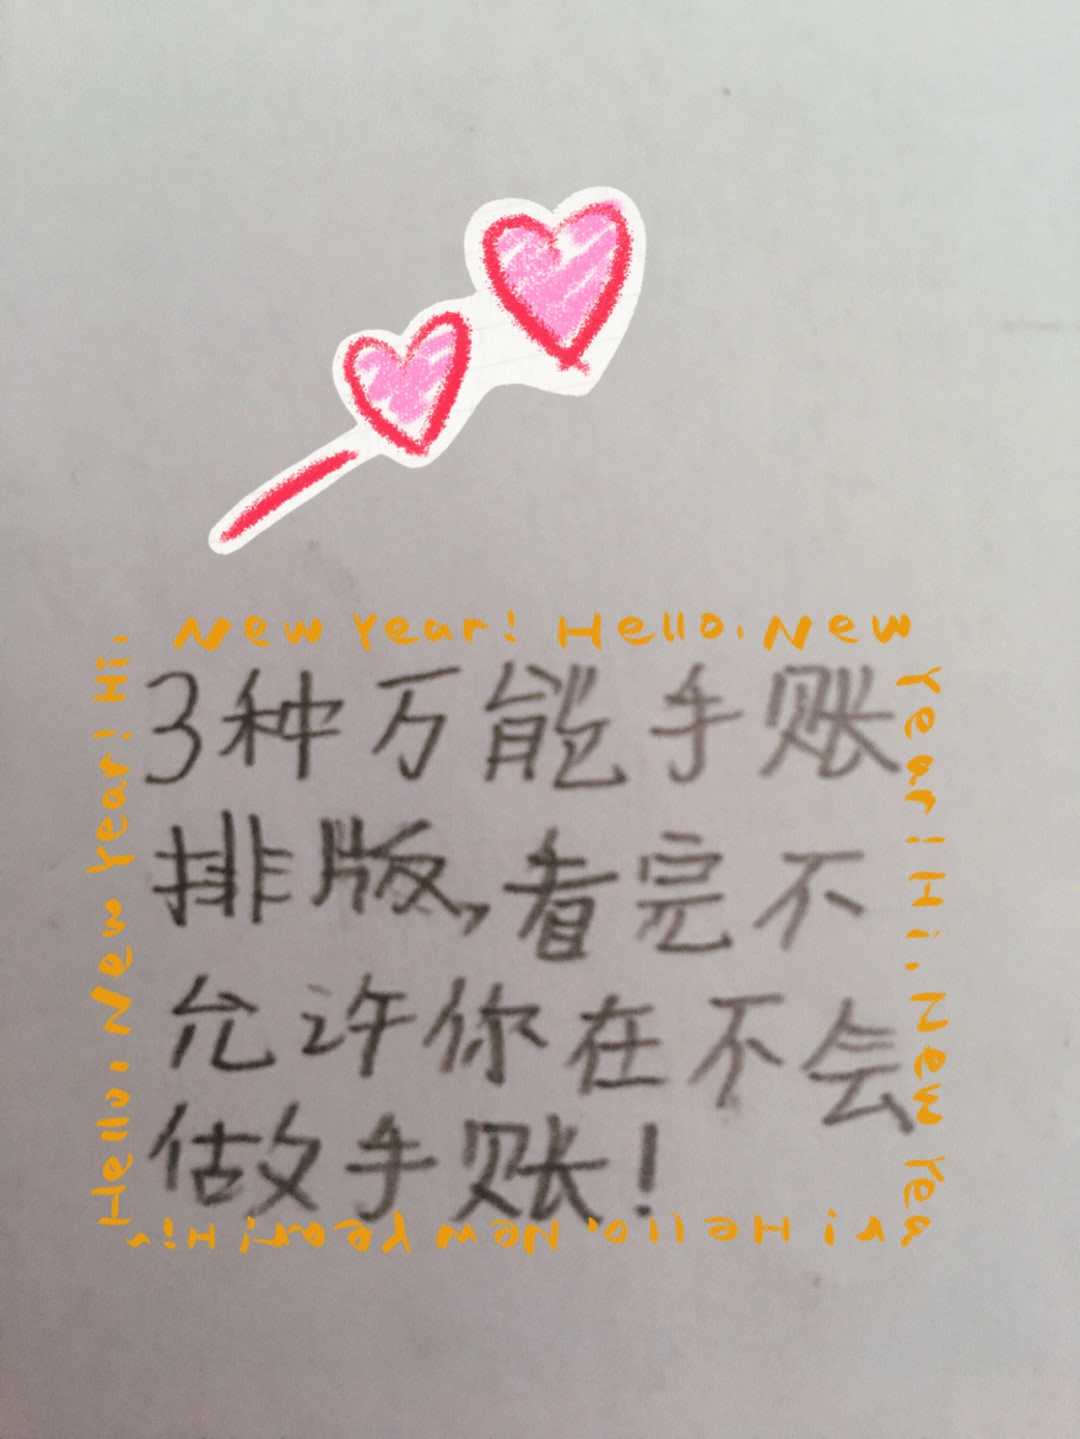 New Year! Hello. New
Year! Hi. New Year! Hello. New Year! Hi.
Hello. New Year! Hi.
3种万能手账
排版,看完不
允许你在不会
做手账!